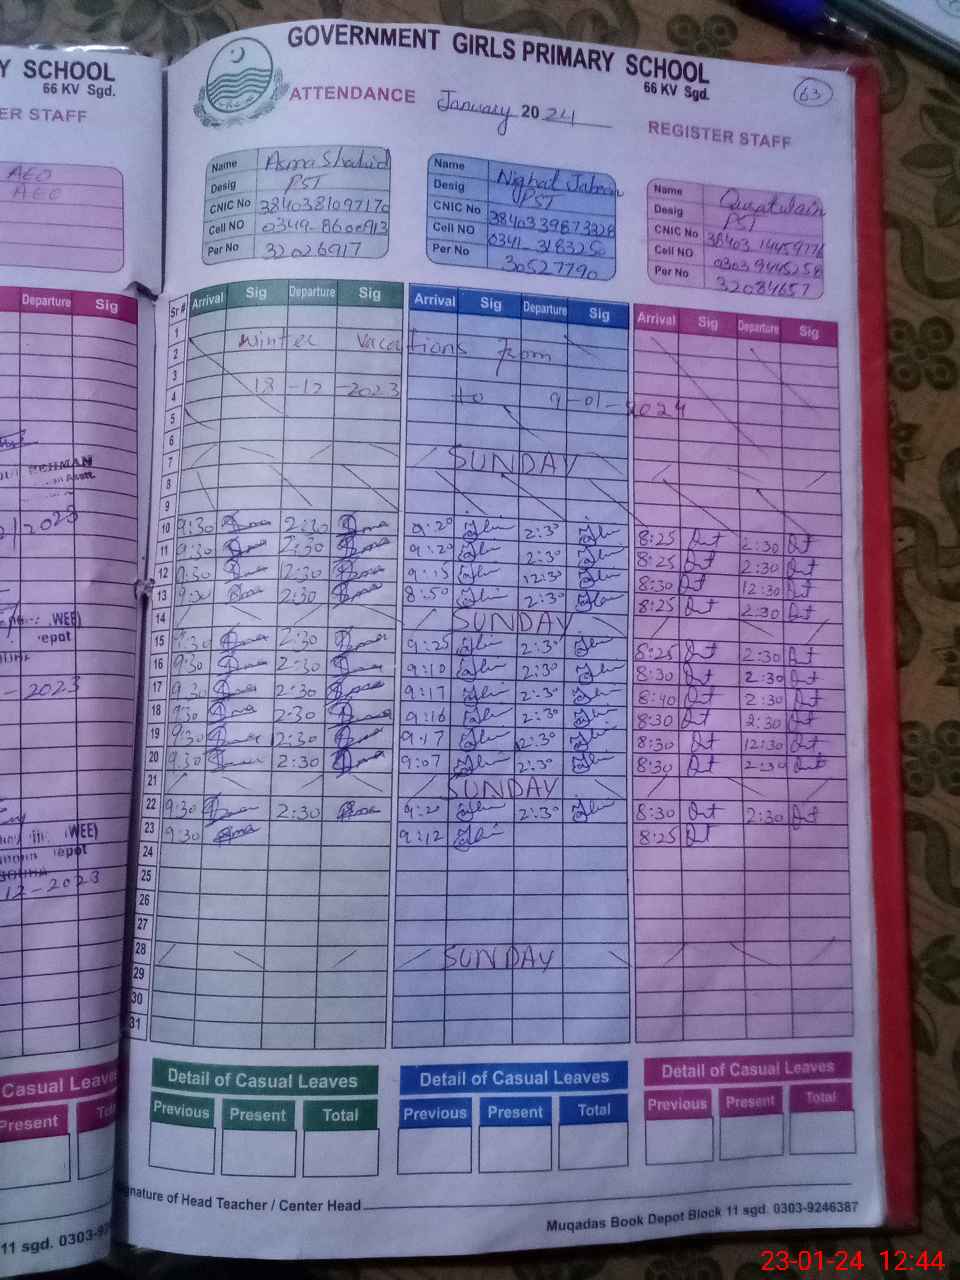 Y SCHOOL
66 KV Sgd.
ER STAFF
AEO
AEO
Departure Sig
2023
WEE)
epot
- 2023
(WEE)
epot
12-2023
Casual Leave
Present
11 sgd. 0303-9
GOVERNMENT GIRLS PRIMARY SCHOOL
66 KV Sgd.
63
ATTENDANCE January 2024 REGISTER STAFF
Name Asma Shahid
Desig PST
CNIC No 3840381097170
Cell NO 0349-8600913
Per No 32026917
Name Nighat Jabeen
Desig PST
CNIC No 3840339873328
Cell NO 0341-3183250
Per No 30527790
Name Quratulain
Desig PST
CNIC No 38403 14459776
Cell NO 03039445258
Per No 32084657
Sr# Arrival Sig Departure Sig Arrival Sig Departure Sig Arrival Sig Departure Sig
1
2 Winter Vacations from
3
4 18-12-2023 to 9-01-2024
5
6
7 SUNDAY
8
9
10 9:30 2:30 9:20 2:30 8:25 2:30
11 9:30 2:30 9:20 2:30 8:25 2:30
12 9:30 12:30 9:15 12:30 8:30 12:30
13 9:30 2:30 8:50 2:30 8:25 2:30
14 SUNDAY
15 9:30 2:30 9:25 2:30 8:25 2:30
16 9:30 2:30 9:10 2:30 8:30 2:30
17 9:30 2:30 9:17 2:30 8:40 2:30
18 9:30 2:30 9:16 2:30 8:30 2:30
19 9:30 12:30 9:17 12:30 8:30 12:30
20 9:30 2:30 9:07 2:30 8:30 2:30
21 SUNDAY
22 9:30 2:30 9:20 2:30 8:30 2:30
23 9:30 9:12 8:25
24
25
26
27
28 SUNDAY
29
30
31
Detail of Casual Leaves Detail of Casual Leaves Detail of Casual Leaves
Previous Present Total Previous Present Total Previous Present Total
gnature of Head Teacher / Center Head
Muqadas Book Depot Block 11 sgd. 0303-9246387
23-01-24 12:44